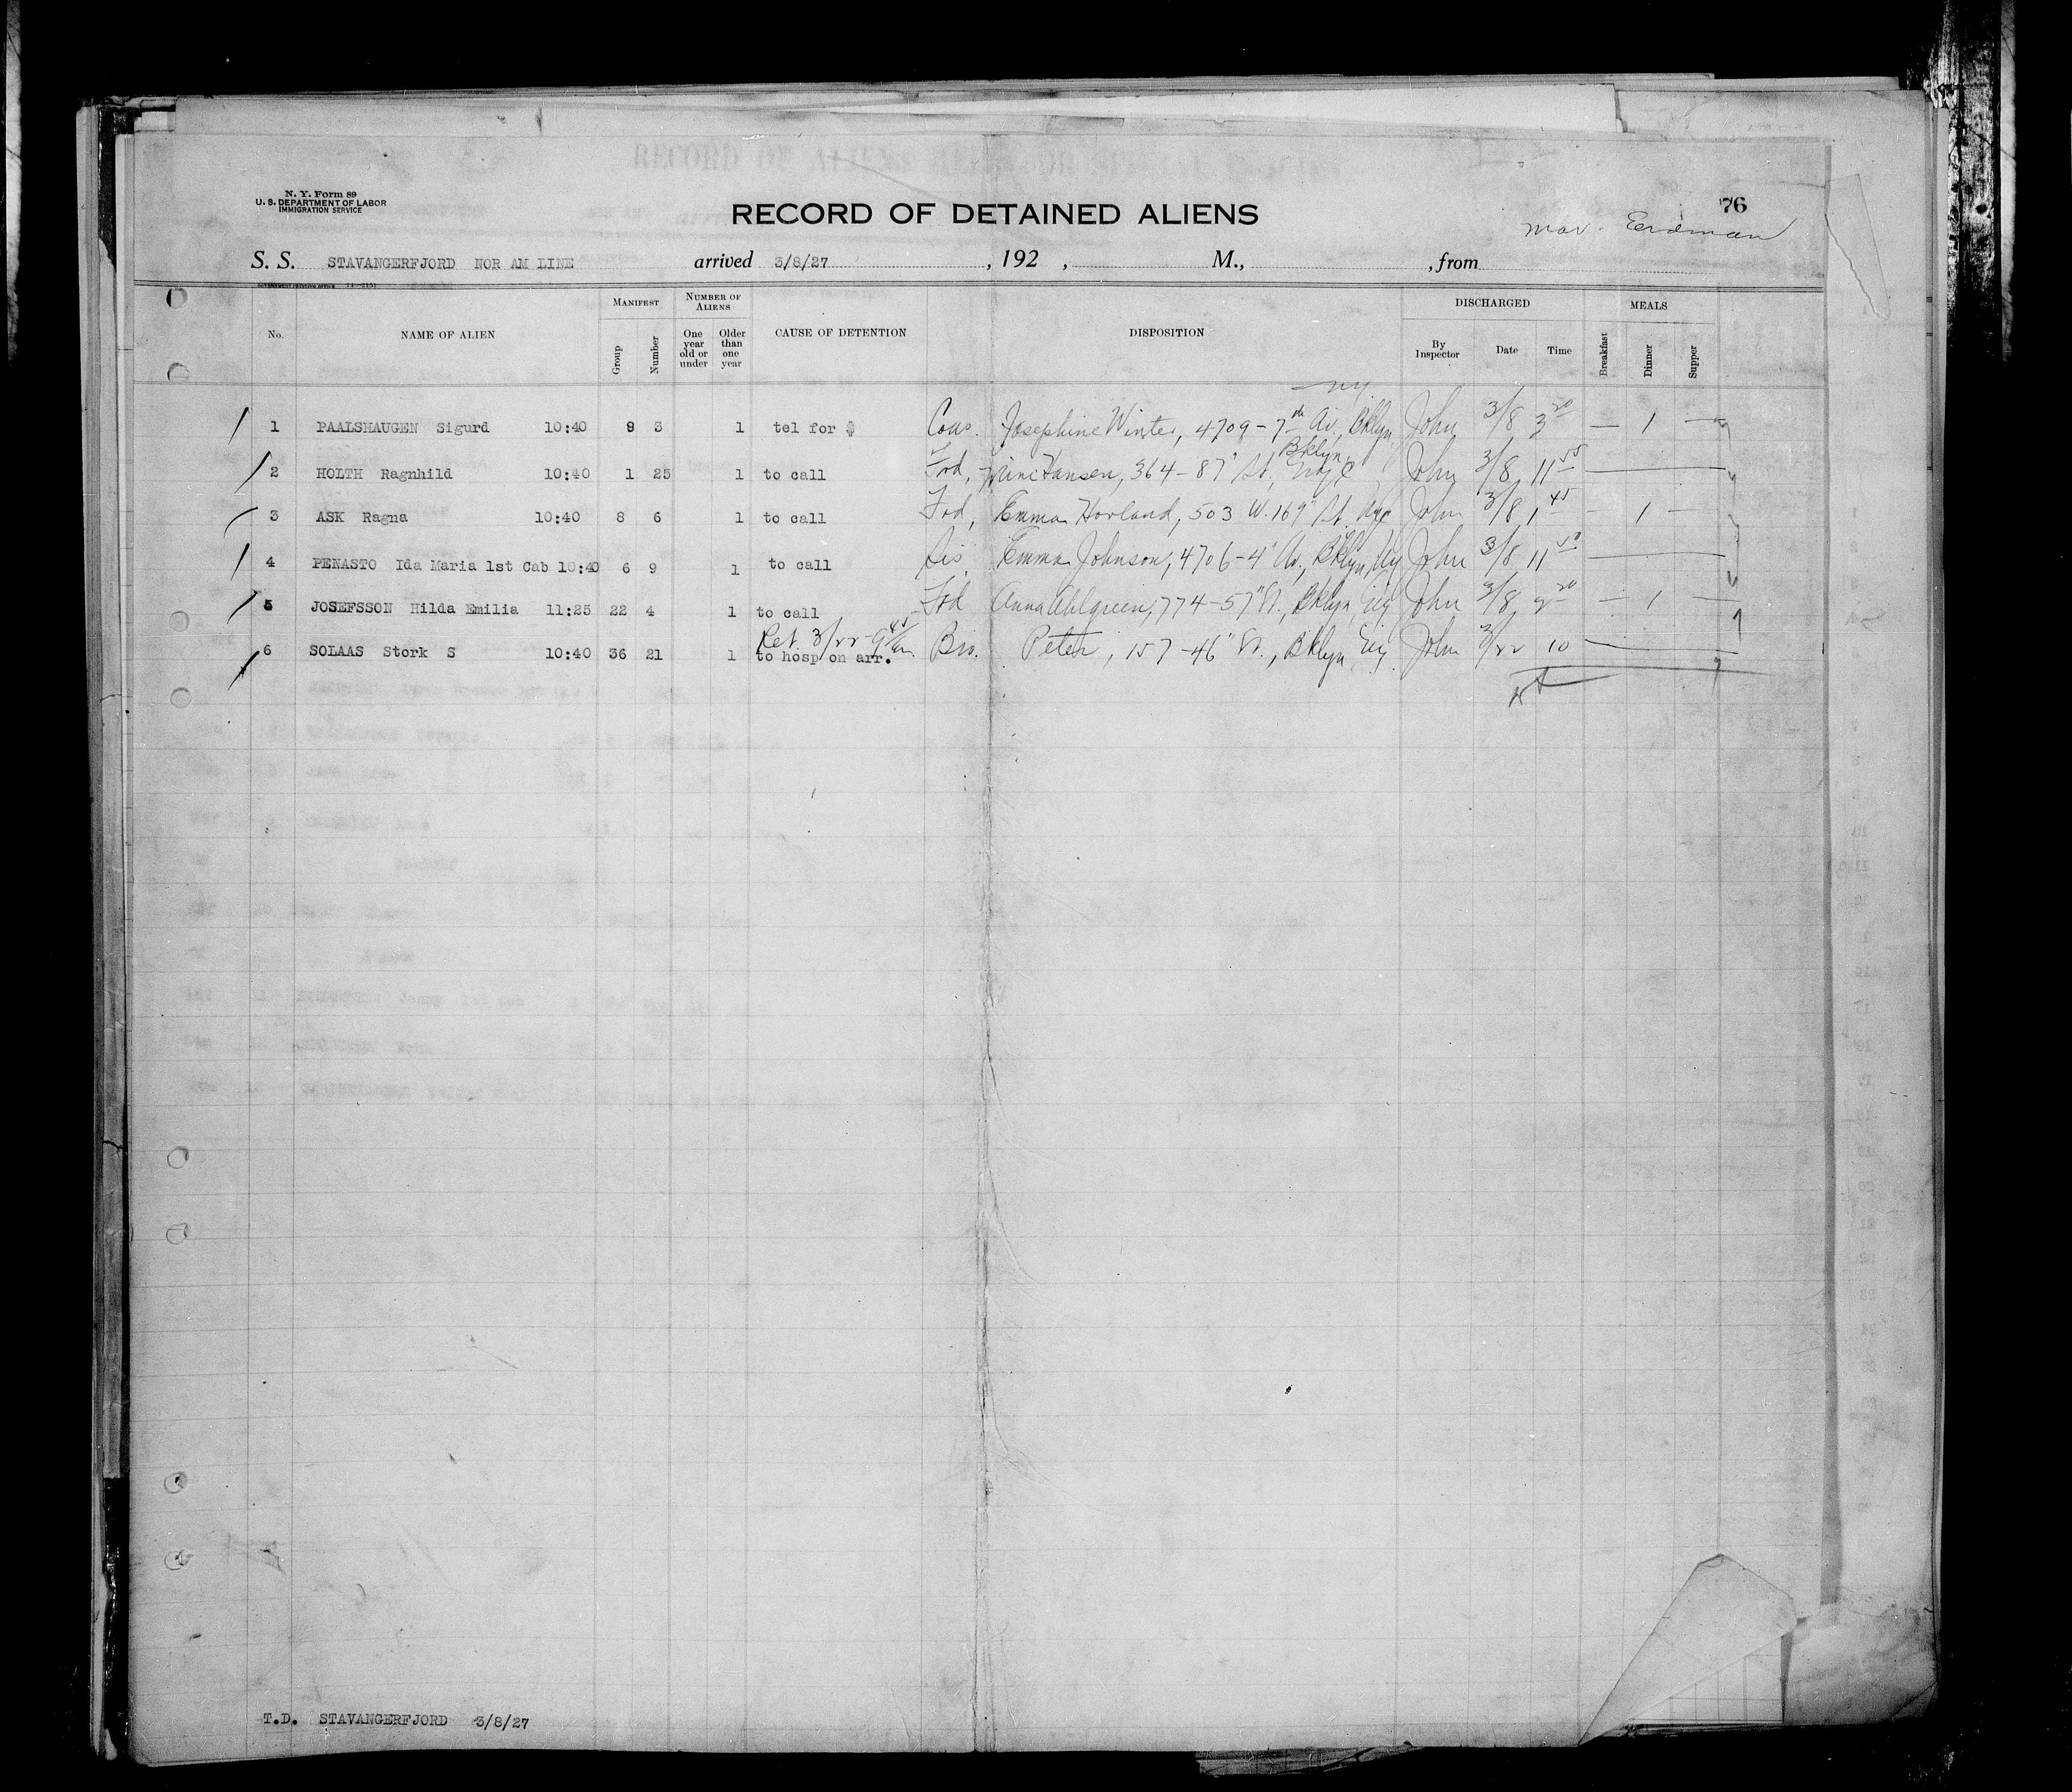 N. Y. Form 89
U. S. DEPARTMENT OF LABOR
IMMIGRATION SERVICE
RECORD OF DETAINED ALIENS
76
Erdman
S. S. STAVANGERFJORD NOR AM LINE arrived 3/8/27 , 192 , M., , from
No. NAME OF ALIEN MANIFEST NUMBER OF ALIENS CAUSE OF DETENTION DISPOSITION DISCHARGED MEALS
Group Number One year old or under Older than one year By Inspector Date Time Breakfast Dinner Supper
1 PAALSHAUGEN Sigurd 10:40 9 3 1 tel for $ Cous. Josephine Winter, 4709-7th Av., Bklyn, NY John 3/8 3 20 — 1 —
2 HOLTH Ragnhild 10:40 1 25 1 to call Frd, Hansen, 364-87" St., Bklyn John 3/8 11 55
3 ASK Ragna 10:40 8 6 1 to call Frd, Emma Hovland, 503 W. 169" St. NYC John 3/8 1 45 - 1 -
4 PENASTO Ida Maria 1st Cab 10:40 6 9 1 to call Sis Emma Johnson, 4706-4" Av., Bklyn, NY John 3/8 11 50
5 JOSEFSSON Hilda Emilia 11:25 22 4 1 to call Frd Anna Ahlgreen, 774-57" St., Bklyn, NY John 3/8 2 20 — 1 —
Ret. 3/22 - 9 45 am
6 SOLAAS Stork S 10:40 36 21 1 to hosp on arr. Bro. Peter, 157-46" St., Bklyn, NY John 3/22 10
T.D. STAVANGERFJORD 3/8/27